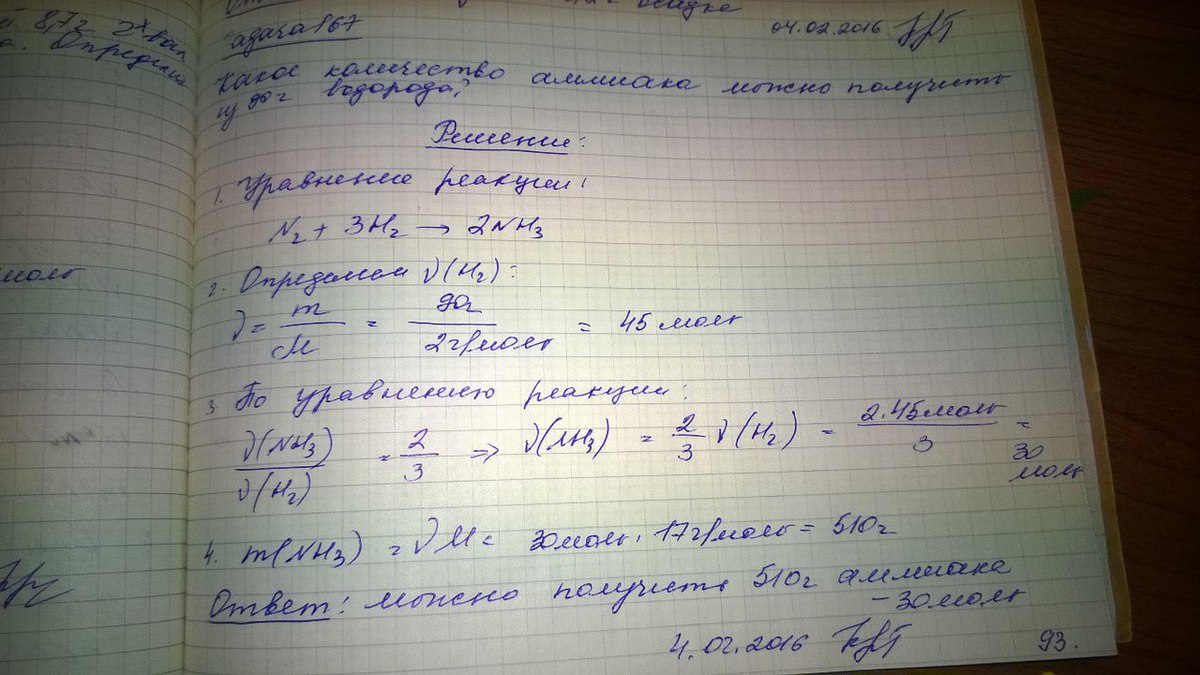 8,7г
Определи
осадке
адача 167
04.02.2016
Какое количество аммиака можно получить
из 90г водорода?
Решение:
1. Уравнение реакции:
N2 + 3H2 → 2NH3
2. Определяем ν(H2):
ν = m/M = 90г/2г/моль = 45 моль
3. По уравнению реакции:
ν(NH3)/ν(H2) = 2/3 ⇒ ν(NH3) = 2/3 ν(H2) = 2·45моль/3 = 30 моль
4. m(NH3) = νM = 30моль · 17г/моль = 510г
Ответ: можно получить 510г аммиака
– 30моль
4.02.2016
93.
моль